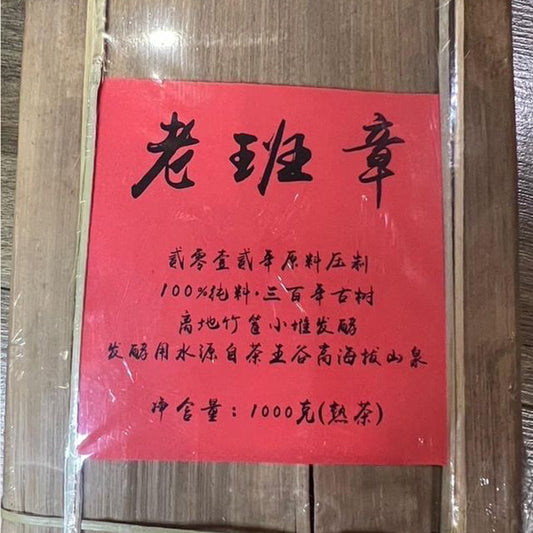 老班章
贰零壹贰年原料压制
100%纯料·三百年古树
离地竹筐小堆发酵
发酵用水源自茶王谷高海拔山泉
净含量：1000克(熟茶)